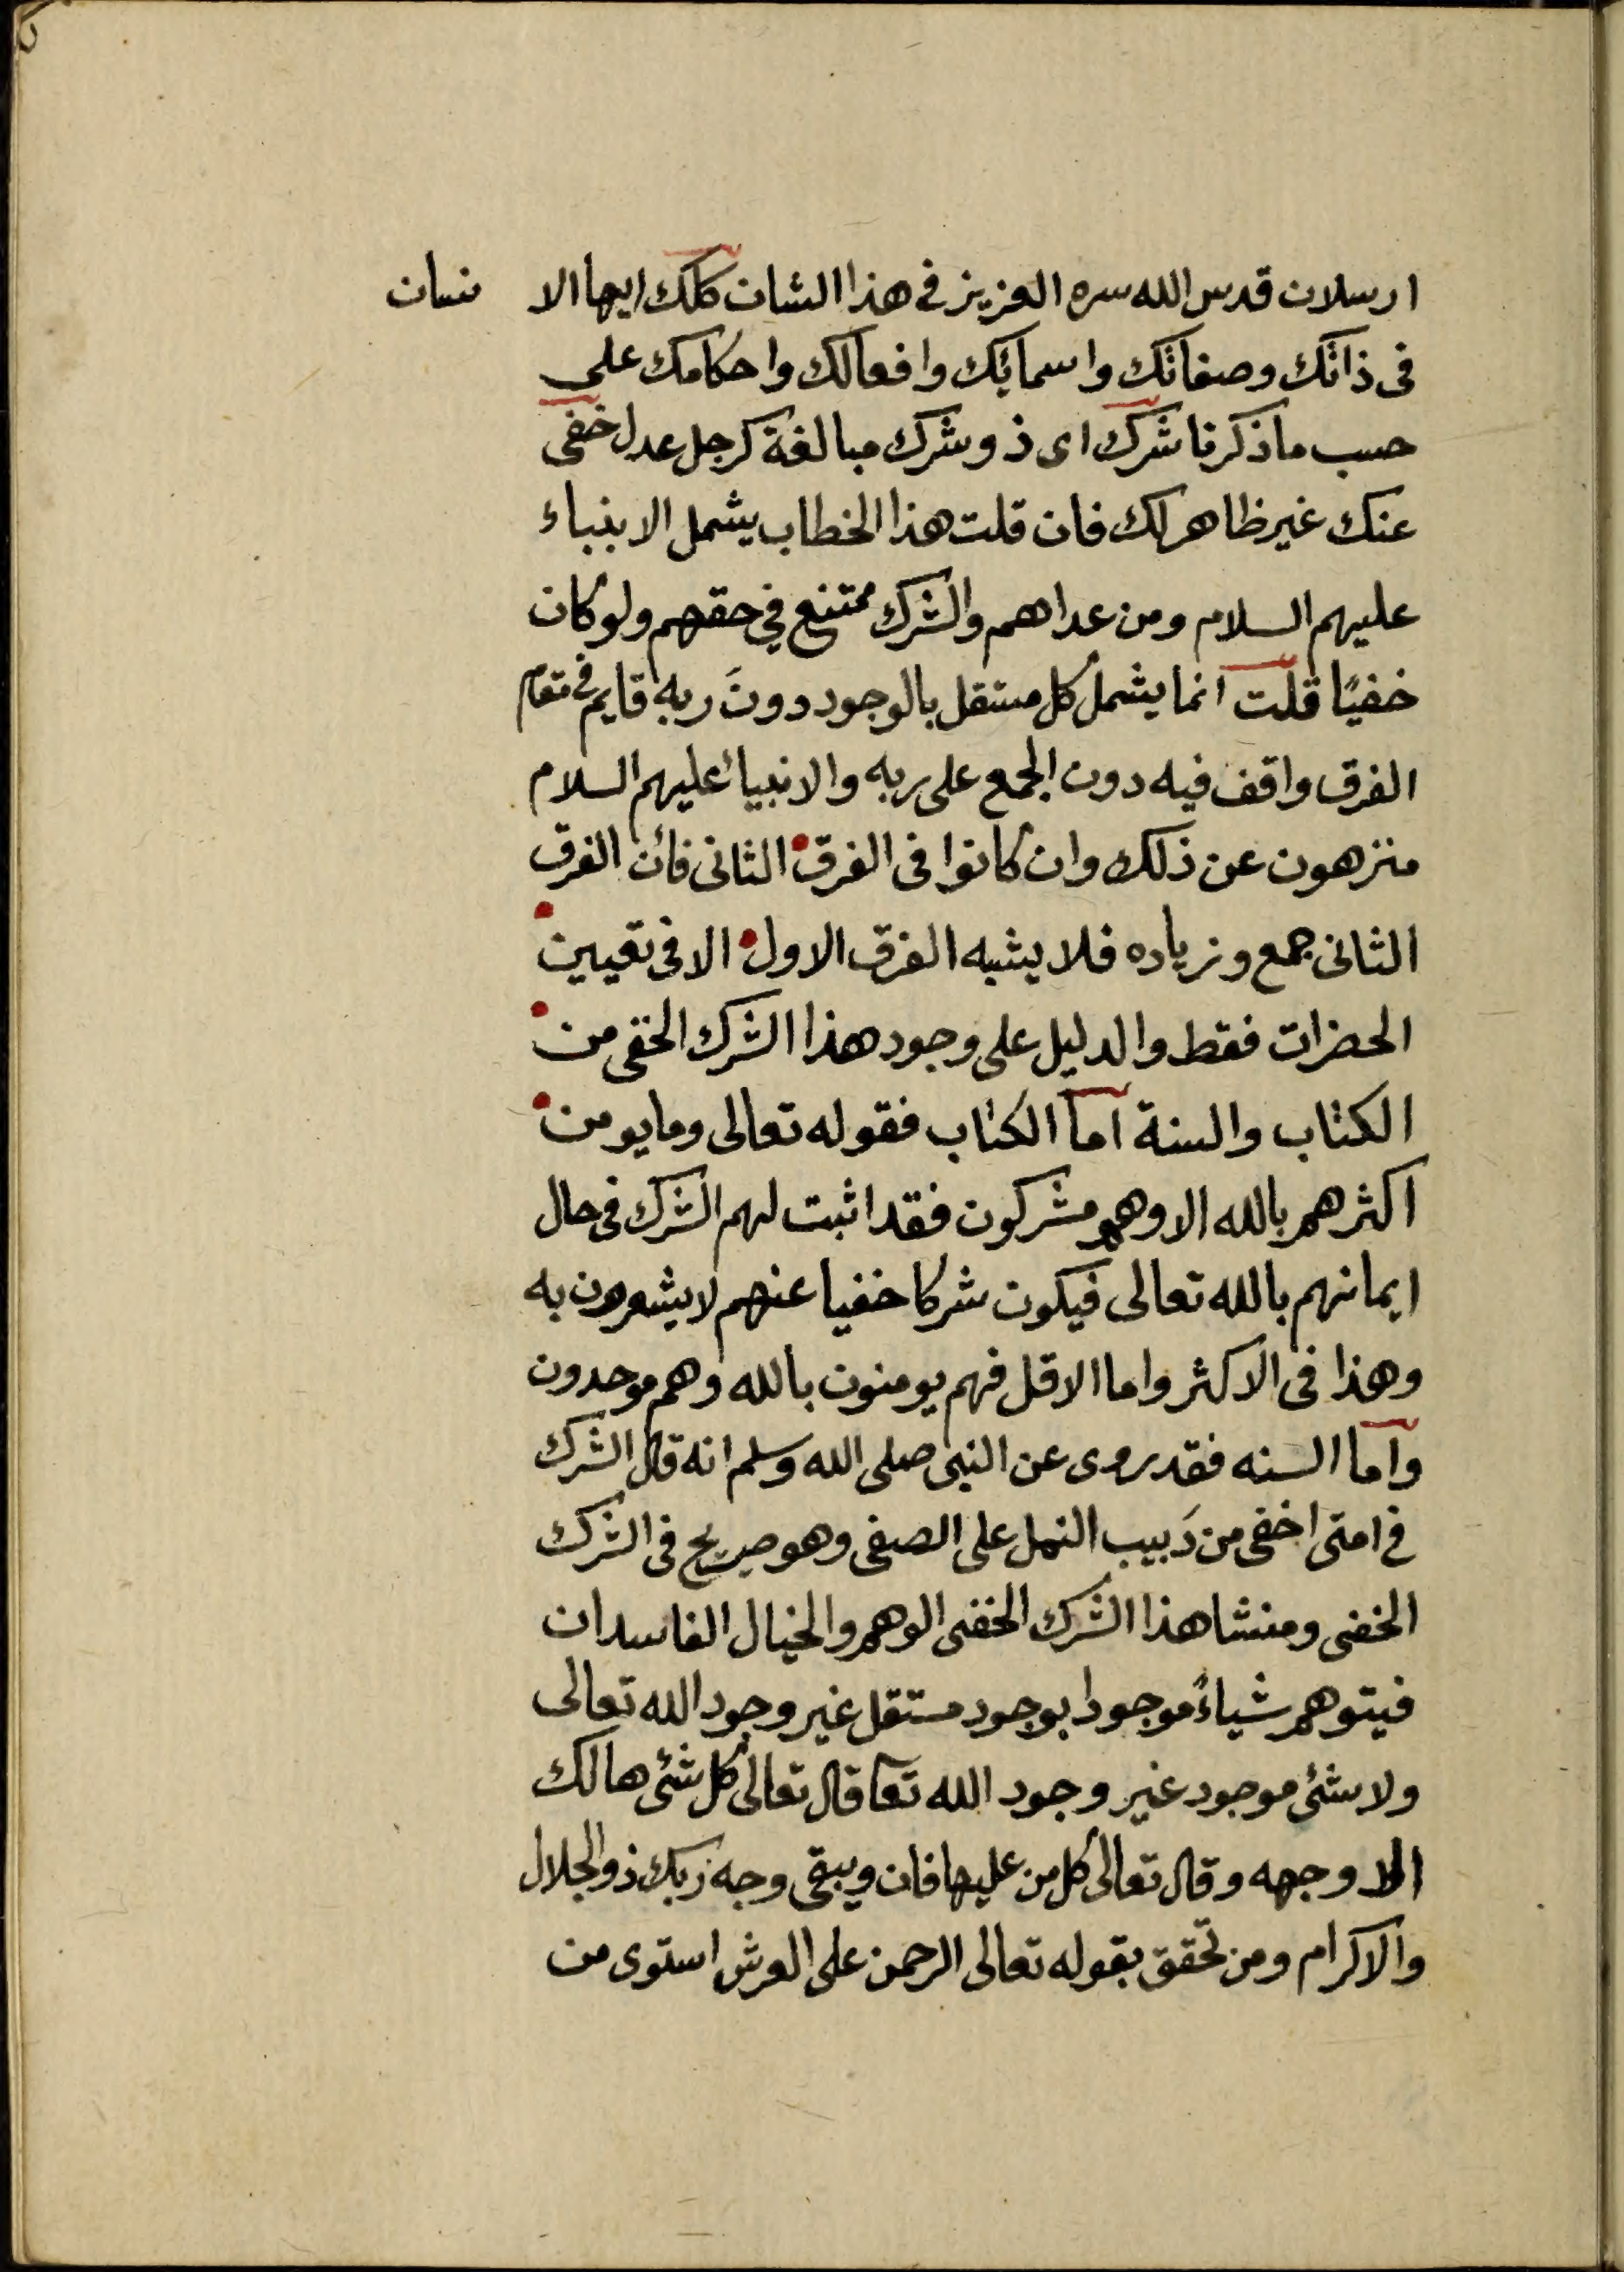 ارسلان قدس الله سره العزيز في هذا الشان كلك ايها الا نسان
فى ذاتك وصفاتك واسمائك وافعالك واحكامك على
حسب ما ذكرنا شرك اى ذو شرك مبالغة كرجل عدل خفى
عنك غير ظاهر لك فان قلت هذا الخطاب يشمل الانبياء
عليهم السلام ومن عداهم والشرك ممتنع في حقهم ولو كان
خفيًا قلت انما يشمل كل مستقل بالوجود دونَ ربه قايم في مقام
الفرق واقف فيه دون الجمع على ربه والانبياء عليهم السلام
منزهون عن ذلك وان كانوا فى الفرق الثانى فان الفرق
الثانى جمع وزياده فلا يشبه الفرق الاول الا فى تعيين
الحضرات فقط والدليل على وجود هذا الشرك الخفى من
الكتاب والسنة اما الكتاب فقوله تعالى وما يومن
اكثرهم بالله الا وهم مشركون فقد اثبت لهم الشرك فى حال
ايمانهم بالله تعالى فيكون شركا خفيا عنهم لا يشعرون به
وهذا فى الاكثر واما الاقل فهم يومنون بالله وهم موحدون
واما السنه فقد روى عن النبى صلى الله وسلم انه قال الشرك
في امتى اخفى من دَبيب النمل على الصفى وهو صريح فى الشرك
الخفى ومنشا هذا الشرك الخفى الوهم والخيال الفاسدان
فيتوهم شياءً موجودا بوجود مستقل غير وجود الله تعالى
ولا شئ موجود غير وجود الله تعا قال تعالى كل شئ هالك
الا وجهه وقال تعالى كل من عليها فان ويبقى وجه ربك ذو الجلال
والاكرام ومن تحقق بقوله تعالى الرحمن على العرش استوى من